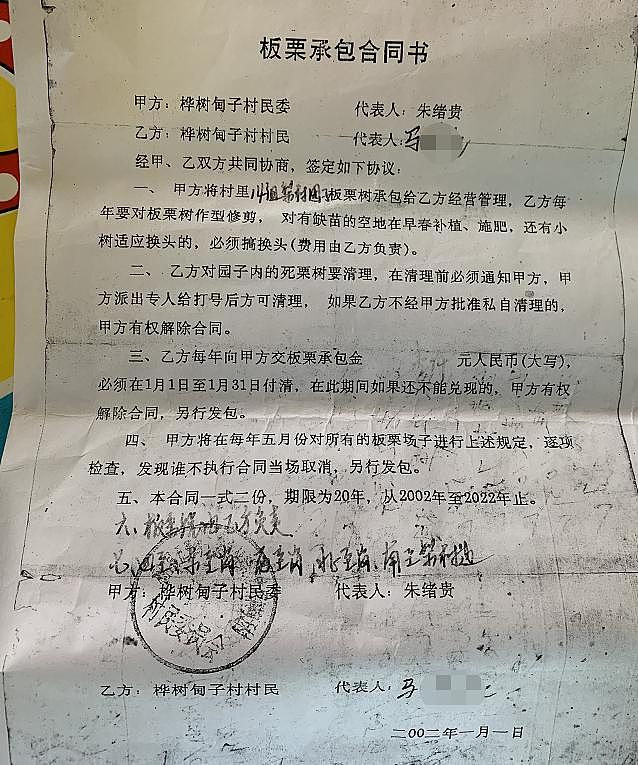 板栗承包合同书
甲方：桦树甸子村民委 代表人：朱绪贵
乙方：桦树甸子村村民 代表人：马
经甲、乙双方共同协商，签定如下协议：
一、甲方将村里 板栗树承包给乙方经营管理，乙方每
年要对板栗树作型修剪， 对有缺苗的空地在早春补植、施肥，还有小
树适应换头的，必须搞换头(费用由乙方负责)。
二、乙方对园子内的死栗树要清理，在清理前必须通知甲方，甲
方派出专人给打号后方可清理， 如果乙方不经甲方批准私自清理的，
甲方有权解除合同。
三、乙方每年向甲方交板栗承包金 元人民币(大写)，
必须在1月1日至1月31日付清，在此期间如果还不能兑现的，甲方有权
解除合同，另行发包。
四、 甲方将在每年五月份对所有的板栗场子进行上述规定，逐项
检查，发现谁不执行合同当场取消，另行发包。
五、本合同一式二份，期限为20年，从2002年至2022年止。
六、 乙方负责
甲方：桦树甸子村民委 代表人：朱绪贵
村民委员会
乙方：桦树甸子村村民 代表人：马
二00二年一月一日